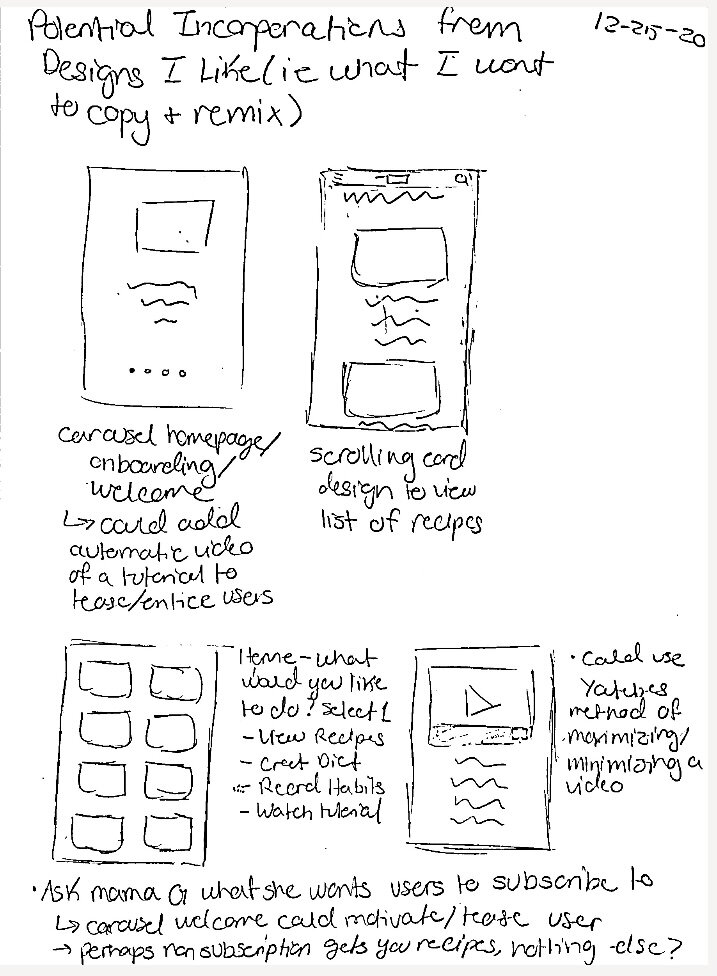 Potential Incorporations from
12-25-20
Designs I Like (ie what I want
to copy + remix)
carousel homepage/
onboarding/
welcome
↳ could add
automatic video
of a tutorial to
tease/entice users
scrolling card
design to view
list of recipes
Home - what
would you like
to do? Select 1
- View Recipes
- Creat Diet
- Record Habits
- Watch tutorial
• Could use
method of
maximizing/
minimizing a
video
• Ask mama G what she wants users to subscribe to
↳ carousel welcome could motivate/tease user
→ perhaps non subscription gets you recipes, nothing else?